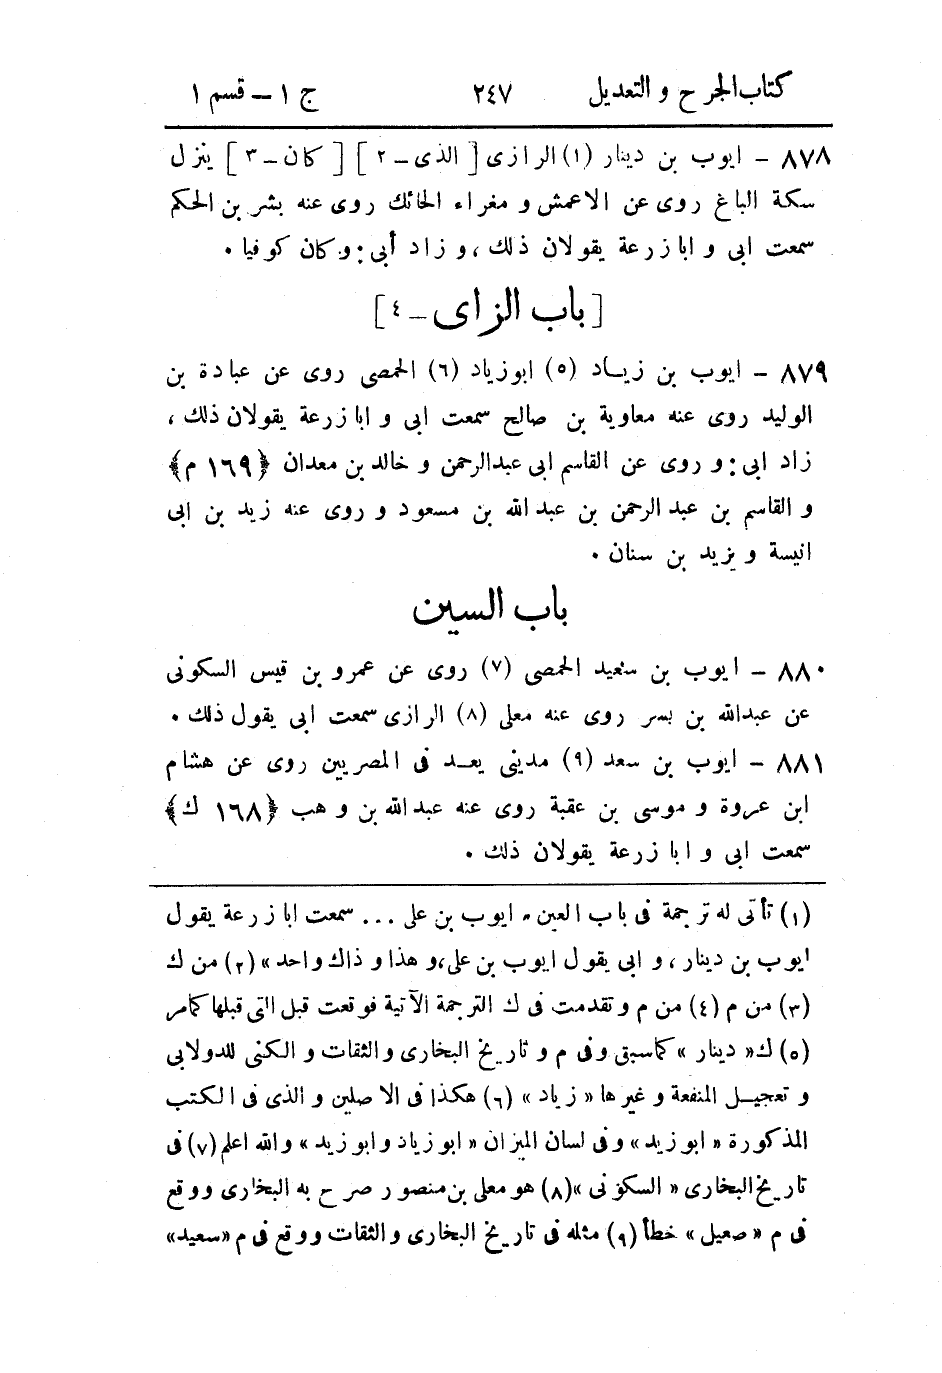 كتاب الجرح و التعديل ٢٤٧ ج ١ – قسم ١
٨٧٨ – ايوب بن دينار (١) الرازى [ الذى – ٢ ] [ كان – ٣ ] ينزل
سكة الباغ روى عن الاعمش و مغراء الحائك روى عنه بشر بن الحكم
سمعت ابى و ابا زرعة يقولان ذلك ، و زاد أبى : وكان كوفيا .
[ باب الزاى – ٤ ]
٨٧٩ – ايوب بن زيـاد (٥) ابوزياد (٦) الحمصى روى عن عبادة بن
الوليد روى عنه معاوية بن صالح سمعت ابى و ابا زرعة يقولان ذلك ،
زاد ابى : و روى عن القاسم ابى عبدالرحمن و خالد بن معدان ﴿١٦٩ م﴾
و القاسم بن عبد الرحمن بن عبد الله بن مسعود و روى عنه زيد بن ابى
انيسة و يزيد بن سنان .
باب السين
٨٨٠ – ايوب بن سعيد الحمصى (٧) روى عن عمرو بن قيس السكونى
عن عبدالله بن بسر روى عنه معلى (٨) الرازى سمعت ابى يقول ذلك .
٨٨١ – ايوب بن سعد (٩) مدينى يعـد فى المصريين روى عن هشام
ابن عروة و موسى بن عقبة روى عنه عبد الله بن وهب ﴿١٦٨ ك﴾
سمعت ابى و ابا زرعة يقولان ذلك .
(١) تأتى له ترجمة فى باب العين « ايوب بن على ... سمعت ابا زرعة يقول
ايوب بن دينار ، و ابى يقول ايوب بن على، و هذا و ذاك واحد » (٢) من ك
(٣) من م (٤) من م و تقدمت فى ك الترجمة الآتية فوقعت قبل التى قبلها كمامر
(٥) ك « دينار » كماسبق وفى م و تاريخ البخارى والثقات و الكنى للدولابى
و تعجيـل المنفعة و غيرها « زياد » (٦) هكذا فى الاصلين و الذى فى الكتب
المذكورة « ابو زيد » وفى لسان الميزان « ابو زياد وابو زيد » والله اعلم (٧) فى
تاريخ البخارى « السكونى » (٨) هو معلى بن منصور صرح به البخارى ووقع
فى م « صعيل » خطأ (٩) مثله فى تاريخ البخارى والثقات ووقع فى م «سعيد»